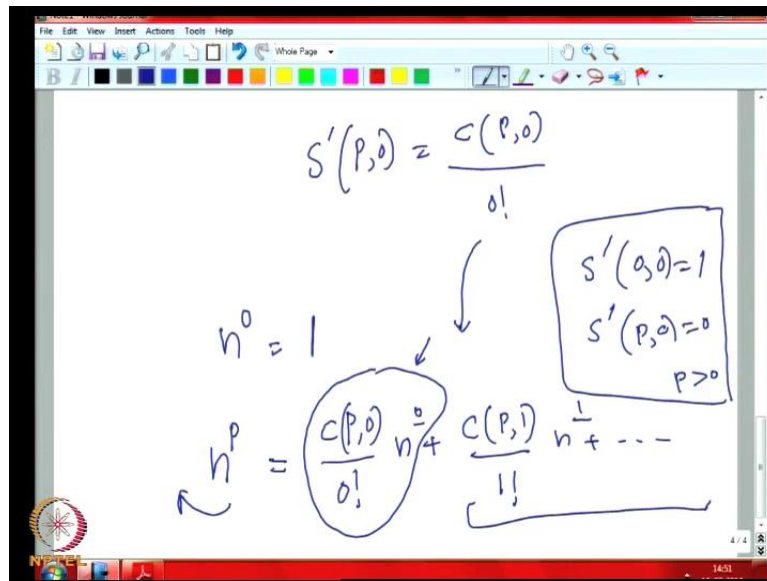 File Edit View Insert Actions Tools Help
Whole Page
B I
S'(P,0) = C(P,0) / 0!
S'(0,0) = 1
S'(P,0) = 0
P > 0
n^0 = 1
n^P = C(P,0)/0! n^0 + C(P,1)/1! n^1 + ---
4 / 4
NPTEL
14:51